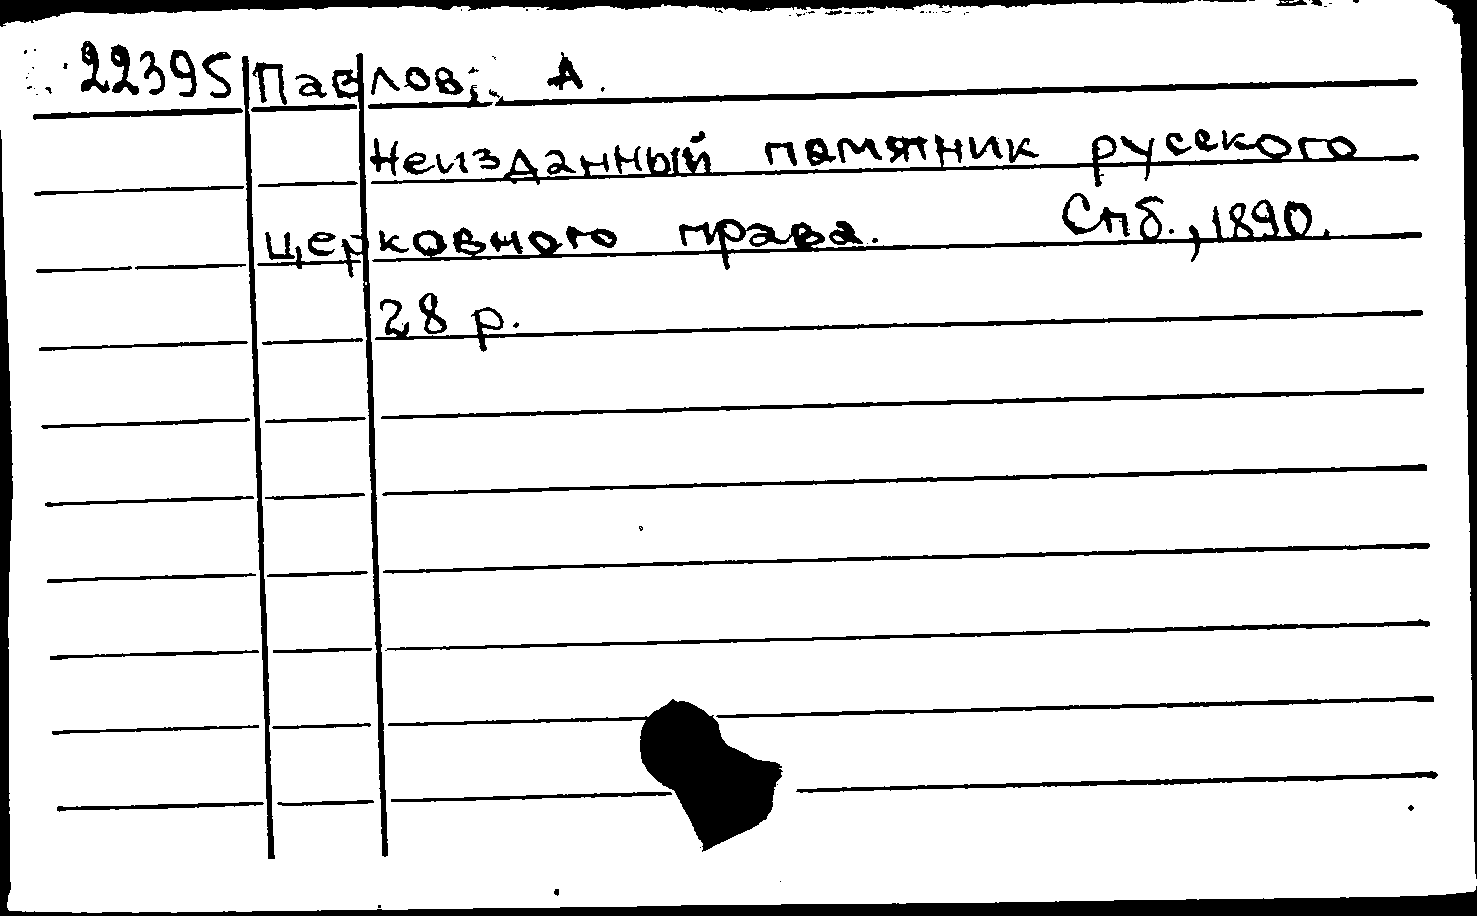 22395 Павлов, А.
Неизданный памятник русского
церковного права. Спб., 1890.
28 р.